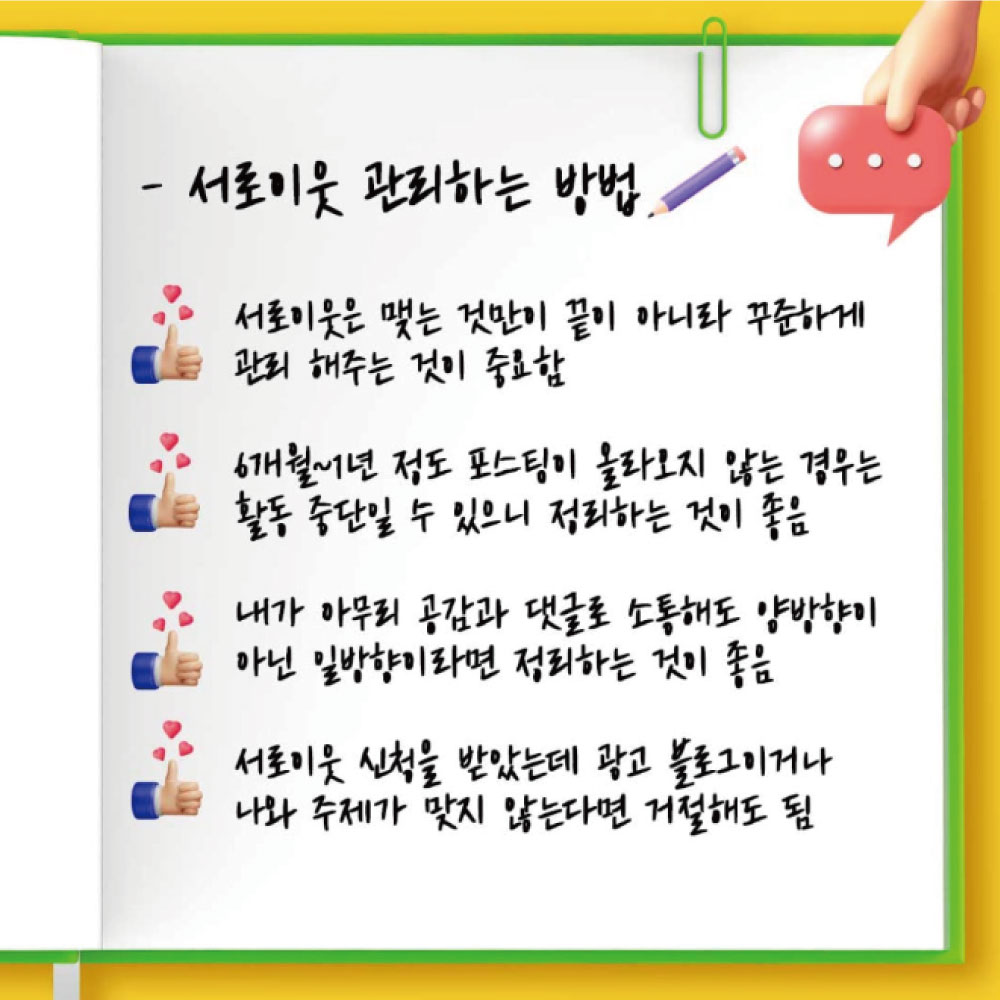 - 서로이웃 관리하는 방법
서로이웃은 맺는 것만이 끝이 아니라 꾸준하게
관리 해주는 것이 중요함
6개월~1년 정도 포스팅이 올라오지 않는 경우는
활동 중단일 수 있으니 정리하는 것이 좋음
내가 아무리 공감과 댓글로 소통해도 양방향이
아닌 일방향이라면 정리하는 것이 좋음
서로이웃 신청을 받았는데 광고 블로그이거나
나와 주제가 맞지 않는다면 거절해도 됨